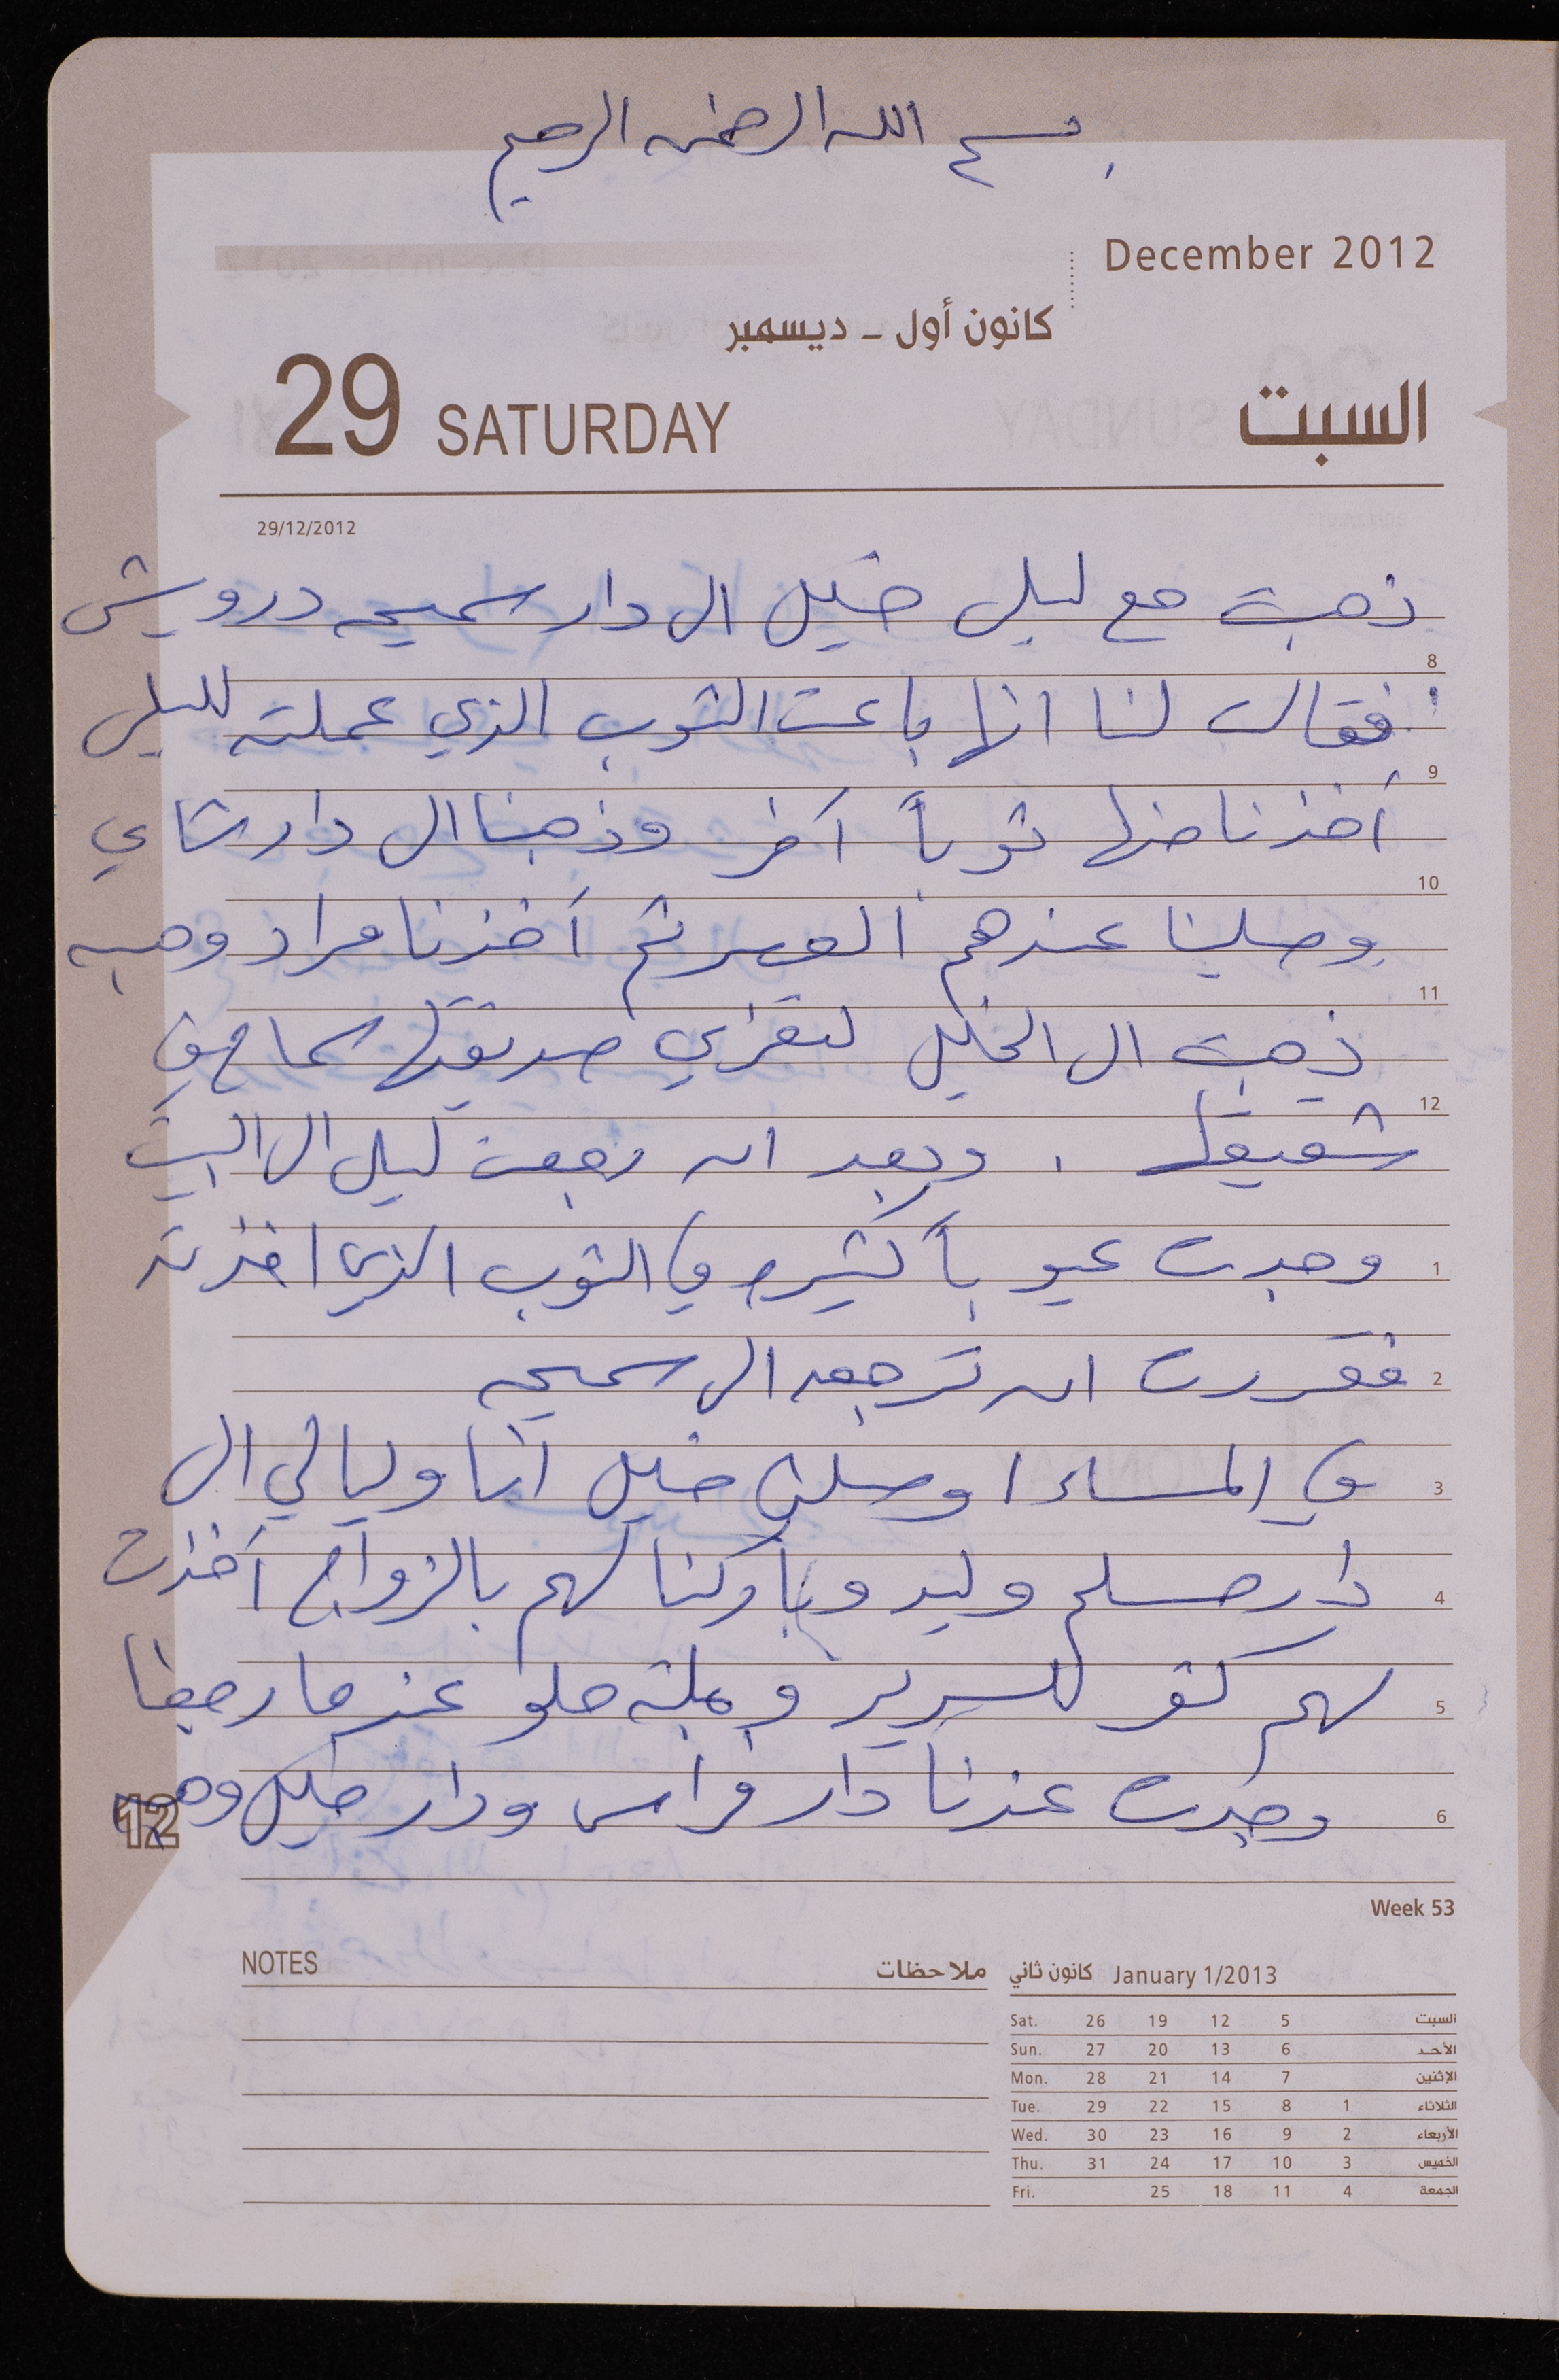 بسم الله الرحمن الرحيم
December 2012
كانون أول - ديسمبر
29 SATURDAY السبت
29/12/2012
ذهبت مع ليلى خليل الى دار سميحه درويش
8
فقالت لنا انها باعت الثوب الذي عملته لليلى
9
أخذنا منها ثوباً آخر وذهبنا الى دار شادي
10
وصلينا عندهم العصر ثم أخذنا مراد وهبه
11
ذهبت الى الخليل لتعزي صديقتها سماح في
12
شقيقها . وبعد ان رجعت ليلى الى البيت
1
وجدت عيوباً كثيره في الثوب الذي اخذته
2
فقررت ان ترجعه الى سميحه
3
في المساء اوصلني خليل انا وليالي الى
4
دار مسلم وليد وباركنا لهم بالزواج أخذت
5
لهم كفر للسرير وعلبة حلو عندما رجعنا
6
وجدت عندنا دار فراس ودار خليل
12
Week 53
NOTES ملاحظات
كانون ثاني January 1/2013
Sat. 26 19 12 5 السبت
Sun. 27 20 13 6 الأحد
Mon. 28 21 14 7 الإثنين
Tue. 29 22 15 8 1 الثلاثاء
Wed. 30 23 16 9 2 الأربعاء
Thu. 31 24 17 10 3 الخميس
Fri. 25 18 11 4 الجمعة